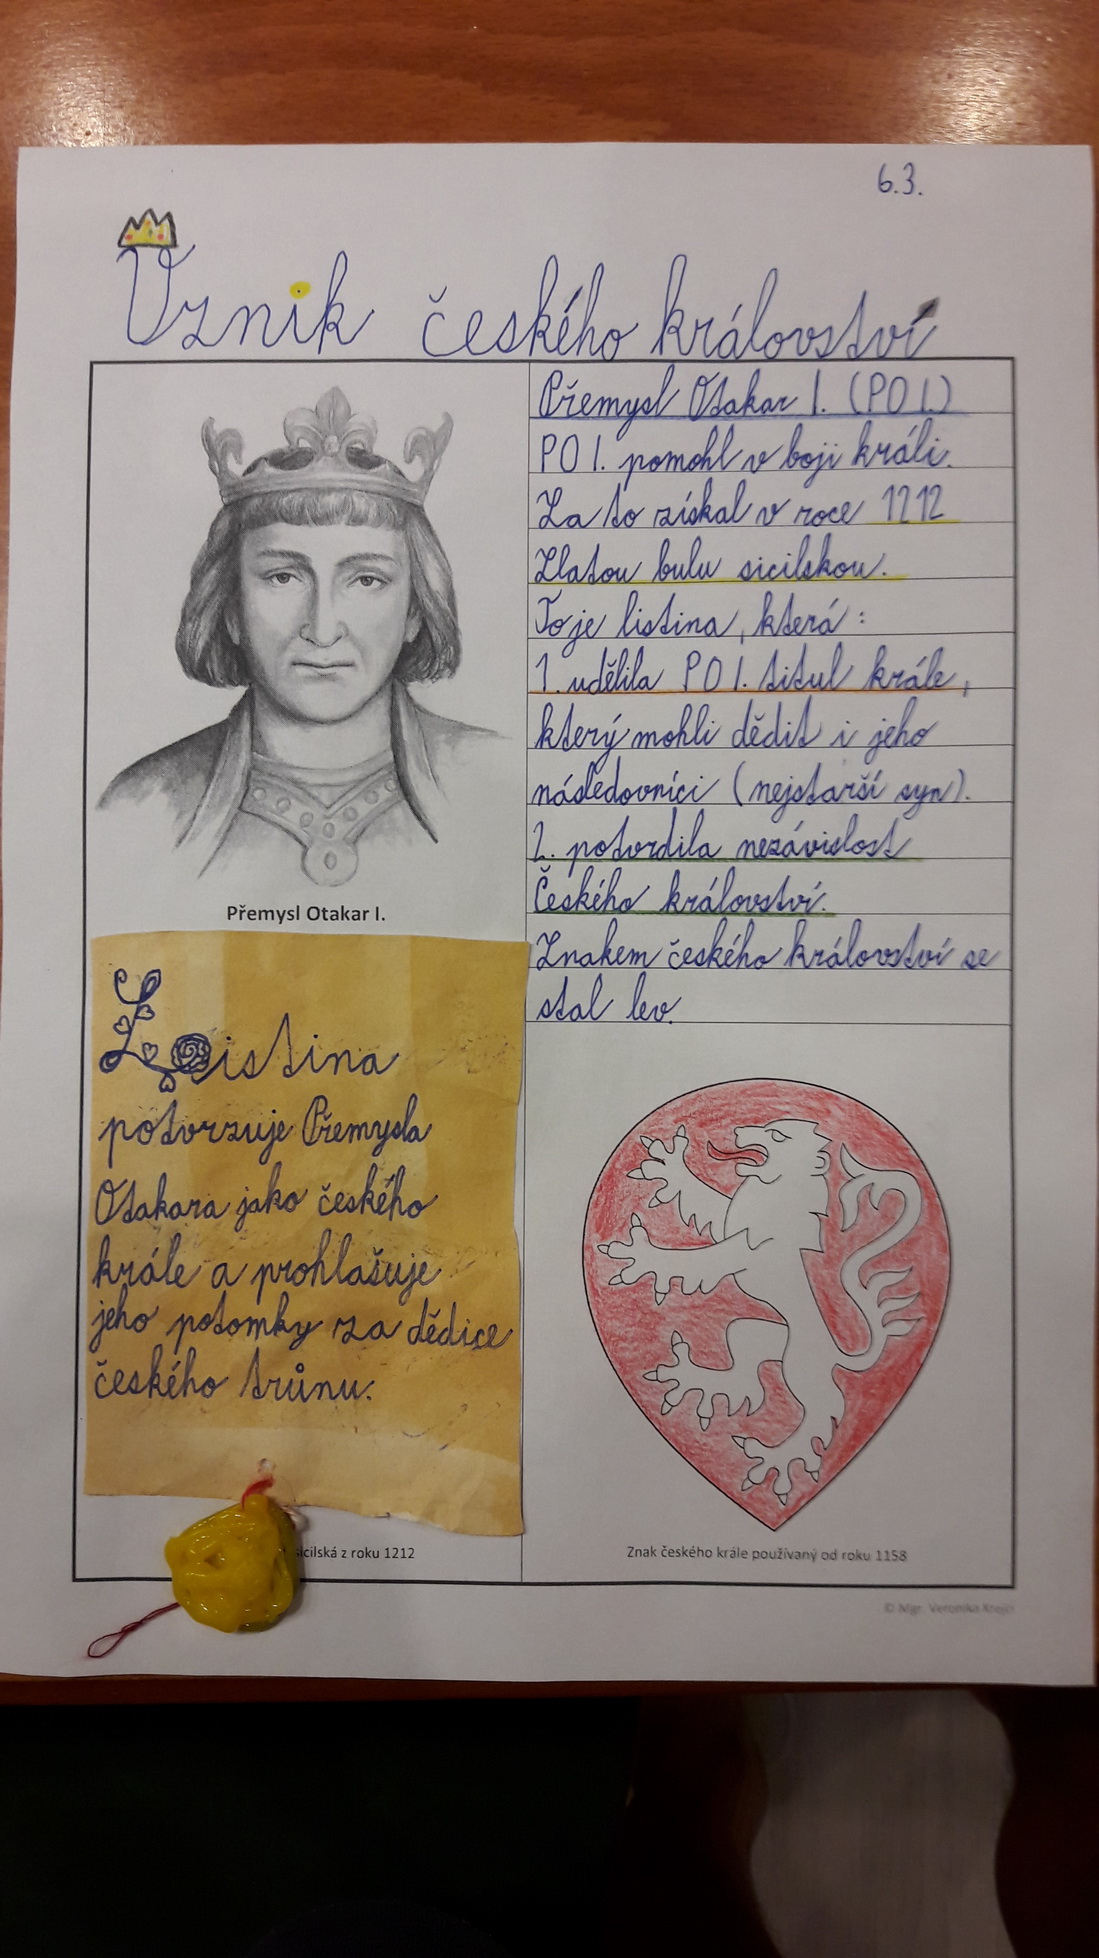 6.3.
Vznik českého království
Přemysl Otakar I. (PO I.)
PO I. pomohl v boji králi.
Za to získal v roce 1212
Zlatou bulu sicilskou.
To je listina, která:
1. udělila PO I. titul krále,
který mohli dědit i jeho
následovníci (nejstarší syn).
2. potvrdila nezávislost
Českého království.
Znakem českého království se
stal lev.
Přemysl Otakar I.
Listina
potvrzuje Přemysla
Otakara jako českého
krále a prohlašuje
jeho potomky za dědice
českého trůnu.
sicilská z roku 1212
Znak českého krále používaný od roku 1158
© Mgr. Veronika